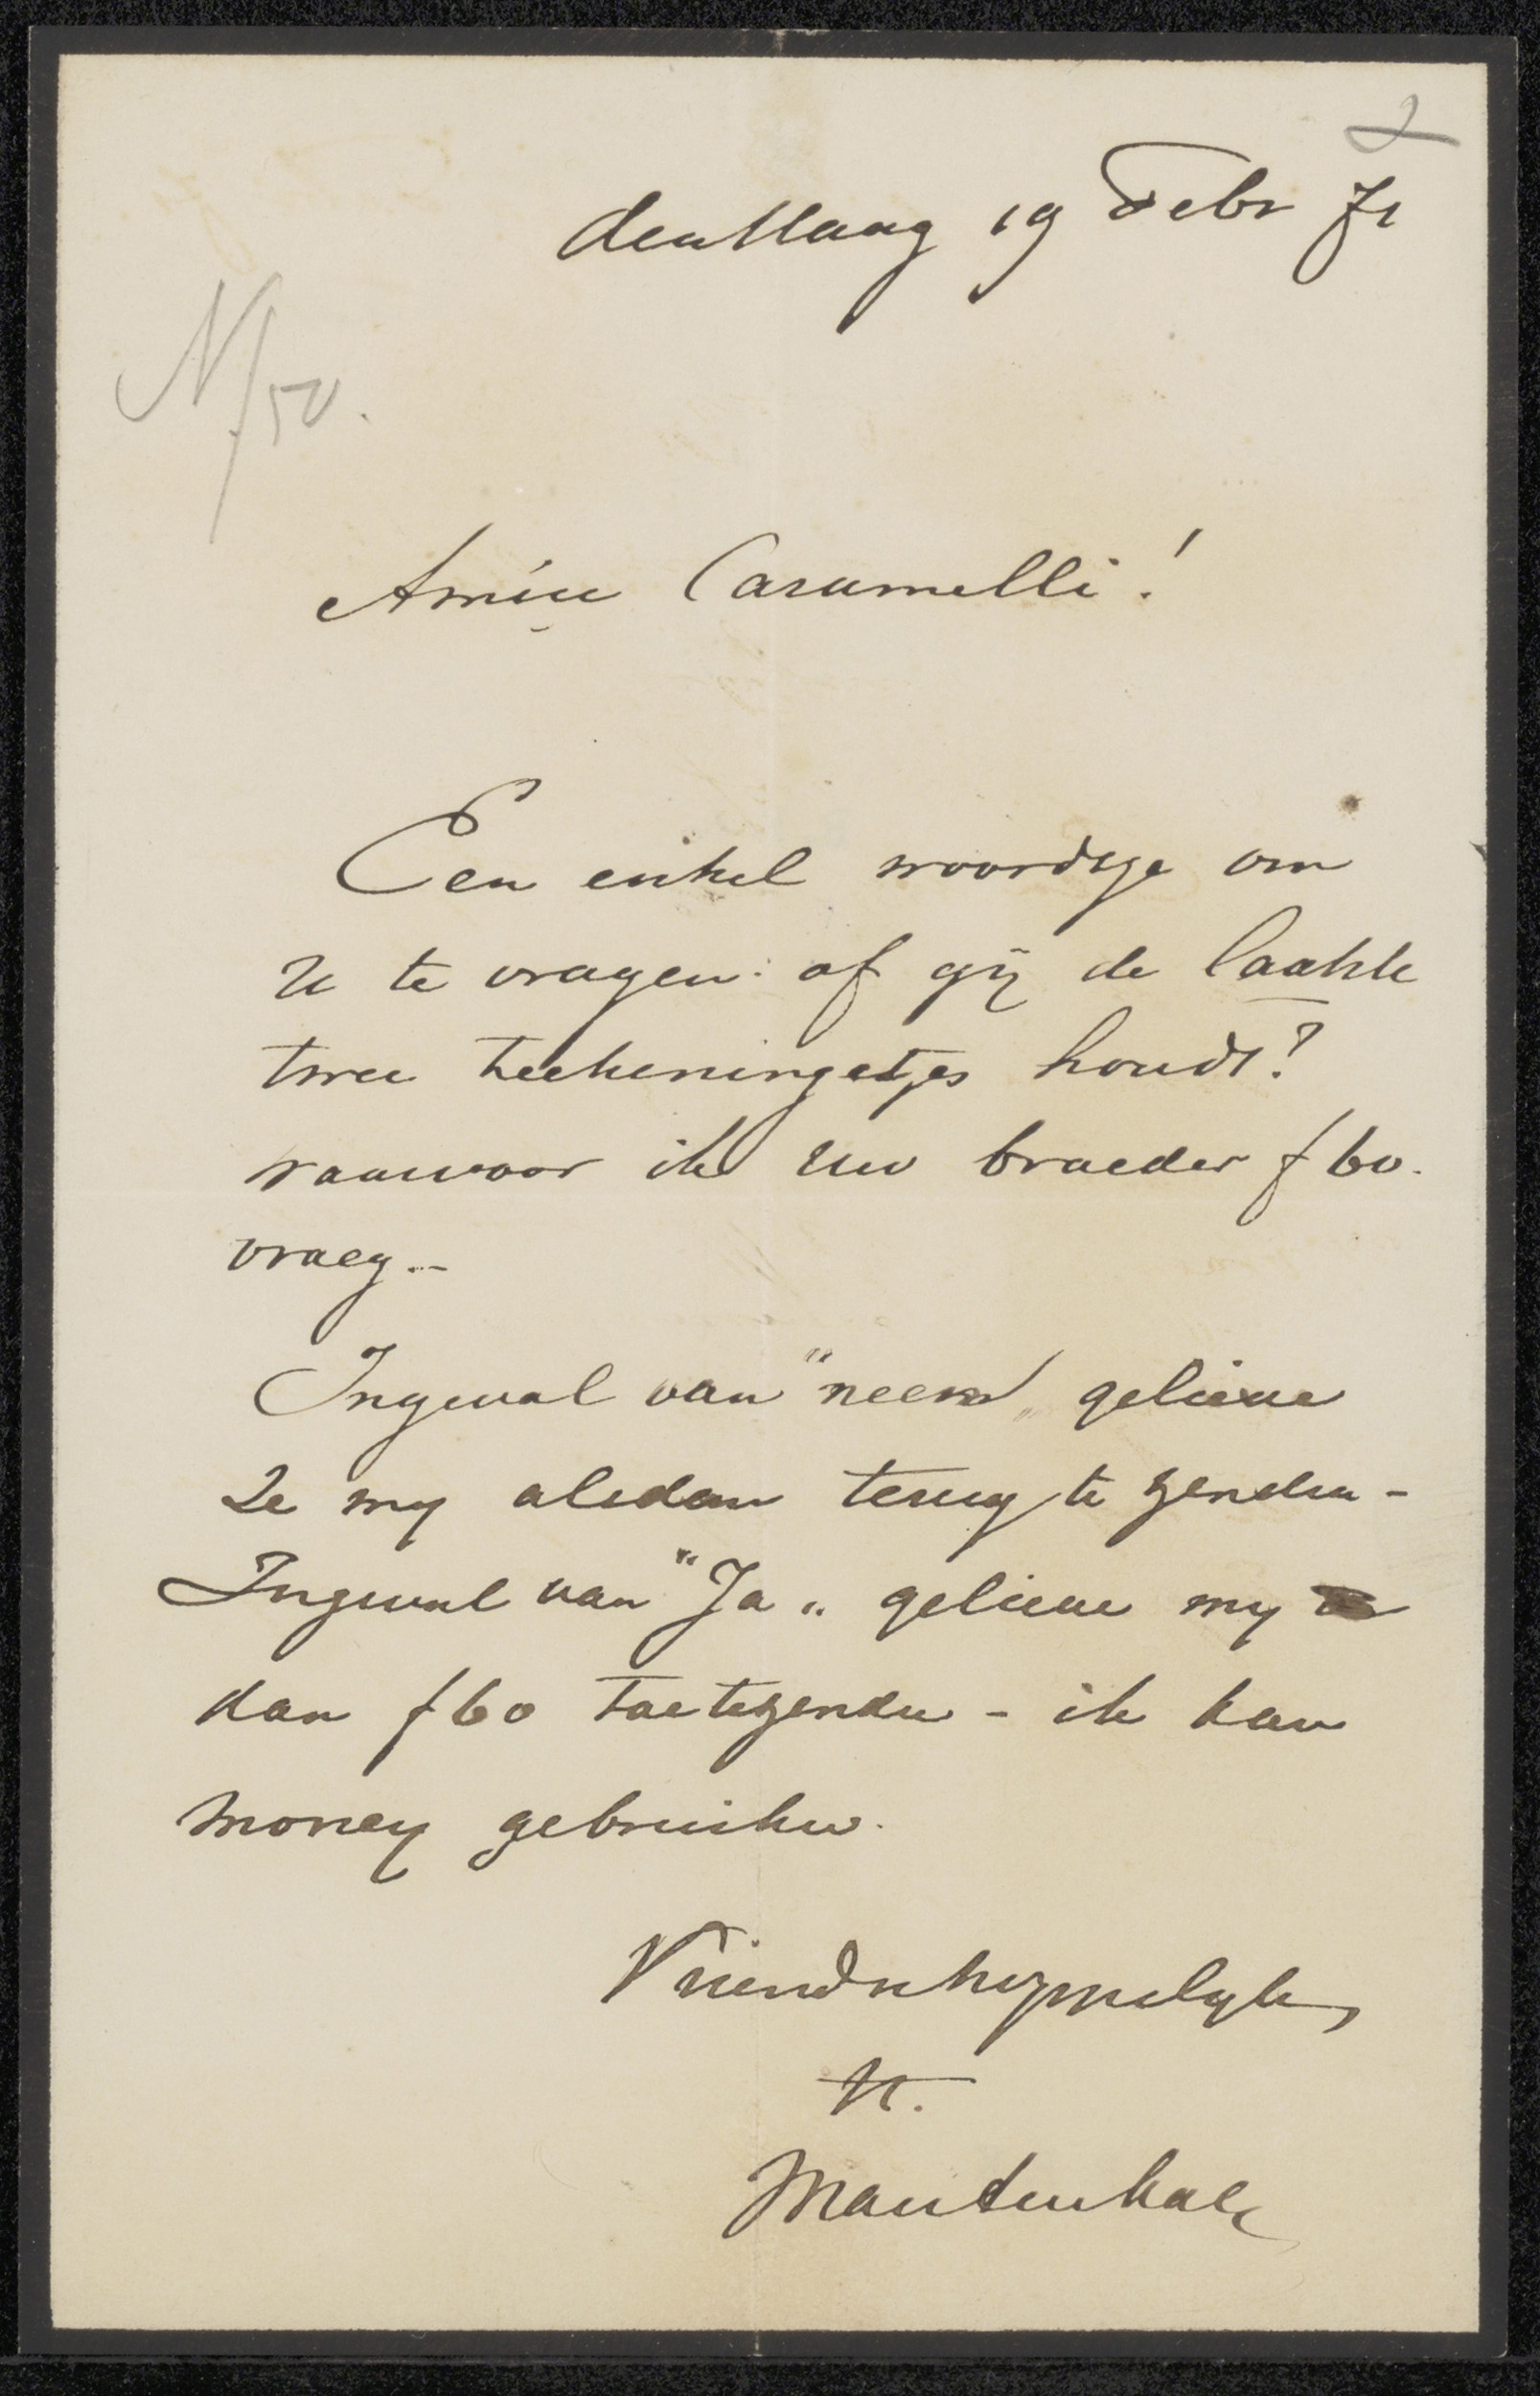 2
den Haag 19 Febr 71
N/50.
Amice Caramelli!
Een enkel woordtje om
U te vragen: of gij de laatste
twee teekeningetjes houdt?
waarvoor ik Uw broeder f 60.
vraeg.-
Ingeval van "neen" gelieve
Ze my alsdan terug te zenden -
Ingeval van "Ja" gelieve my
dan f 60 toetezenden - ik kan
money gebruiken.
Vriendschappelyk,
tt.